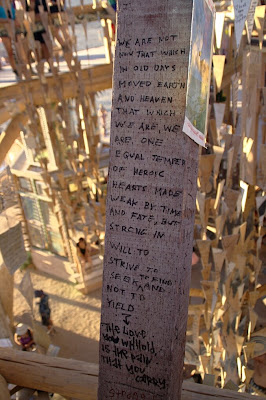 WE ARE NOT
NOW THAT WHICH
IN OLD DAYS
MOVED EARTH
AND HEAVEN
THAT WHICH
WE ARE, WE
ARE, ONE
EQUAL TEMPER
OF HEROIC
HEARTS MADE
WEAK BY TIME
AND FATE, BUT
STRONG IN
WILL TO
STRIVE TO
SEEK TO FIND
AND
NOT TO
YIELD
THE LOVE
YOU WITHHOLD
IS THE PAIN
THAT YOU
CARRY.